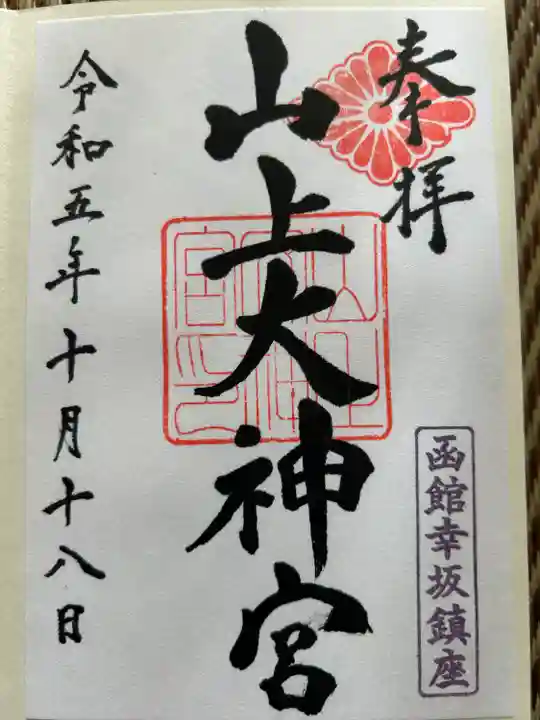 奉拝
函館幸坂鎮座
山上大神宮
令和五年十月十八日